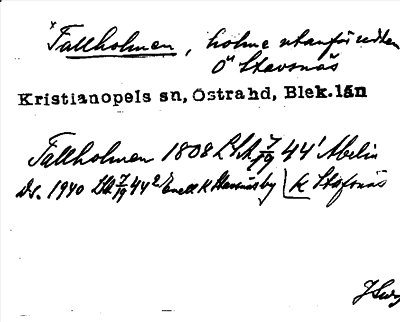 Tallholmen, holme utanför udden
Ö Stavsnäs
Kristianopels sn, Östrahd, Blek.län
Tallholmen 1808 LSA 7/19 44' Abelin
Ds. 1940 7/19 44² k Stafsnäs